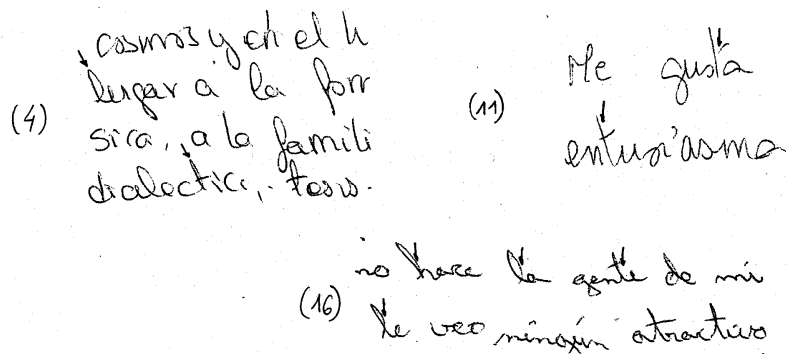 (4)
cosmos y en el h
lugar a la for
sica, a la famili
dialectici, tesis.
(11)
Me gusta
entusiasma
(16)
no hace la gente de mi
le veo ningún atractivo